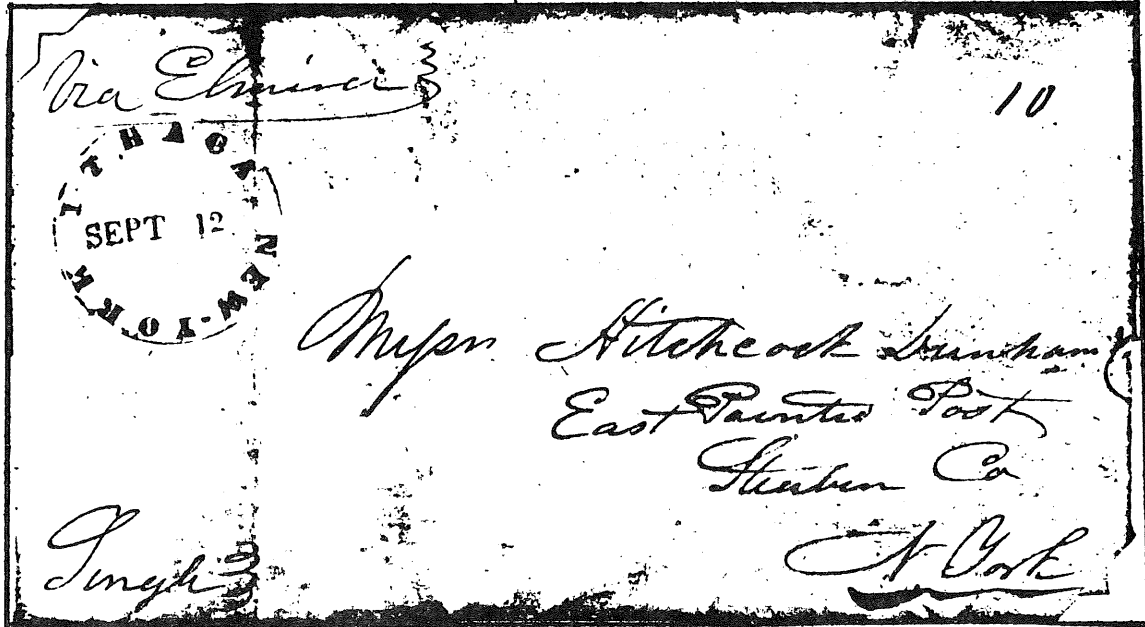 Via Elmira
10
ITHACA NEW-YORK
SEPT 12
Messrs Hitchcock Dunham
East Painted Post
Steuben Co
N York
Single